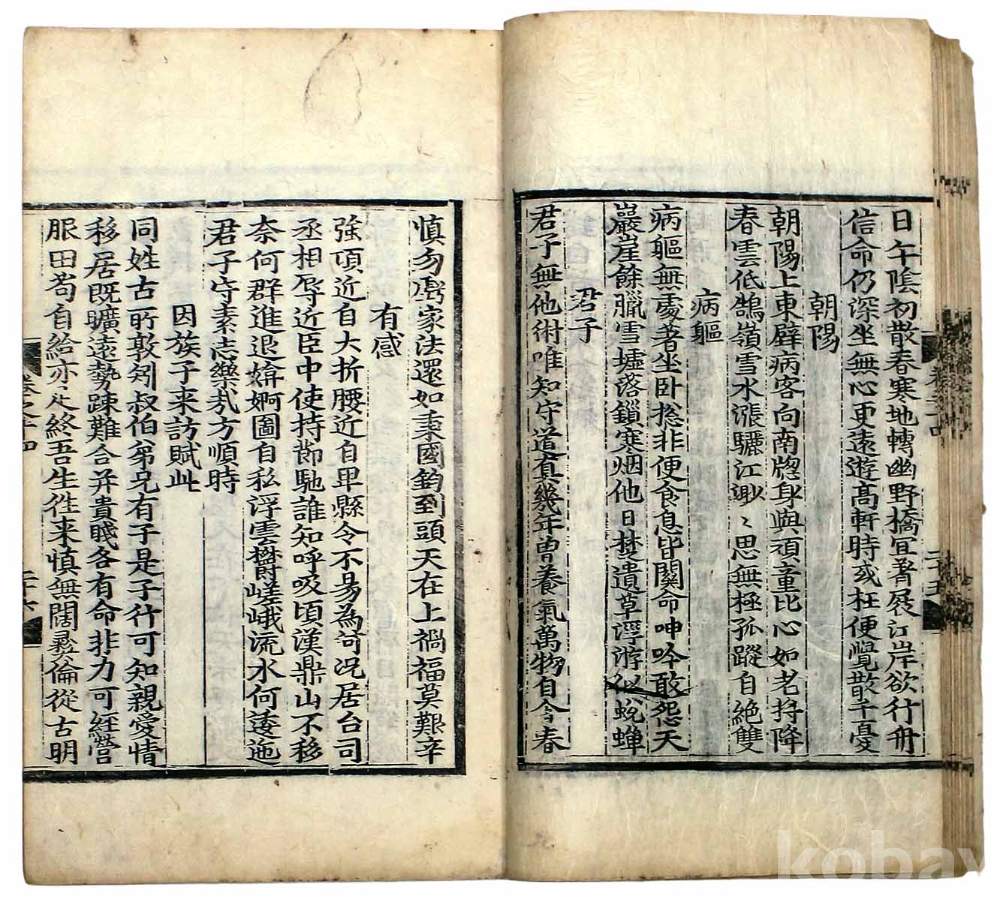 日午陰初散春寒地轉幽野橋宜著屐江岸欲行舟
信命仍深坐無心更遠遊高軒時或枉便覺散千憂
朝陽
朝陽上東壁病客向南牕身與頑童比心如老將降
春雲低鵠嶺雪水漲驪江渺〻思無極孤蹤自絶雙
病軀
病軀無處著坐卧揔非便食息皆關命呻吟敢怨天
巖崖餘臘雪墟落鎖寒烟他日焚遺草浮游似蛻蟬
君子
君子無他術唯知守道真幾年曽養氣萬物自含春
慎勿虧家法還如秉國鈞到頭天在上禍福莫艱辛
有感
強項近自大折腰近自卑縣令不易為況居台司
丞相辱近臣中使持節馳誰知呼吸頃漢鼎山不移
奈何群進退媕婀圖自私浮雲欝嵯峨流水何逶迤
君子守素志樂㢤方順時
因族子来訪賦此
同姓古所敦矧叔伯弟兄有子是子行可知親愛情
移居既曠遠勢踈難合并貴賤各有命非力可經營
服田苟自給亦足終吾生徃来慎無闊彛倫從古明
卷之十四
二十五
卷之十四
二十六
kobay